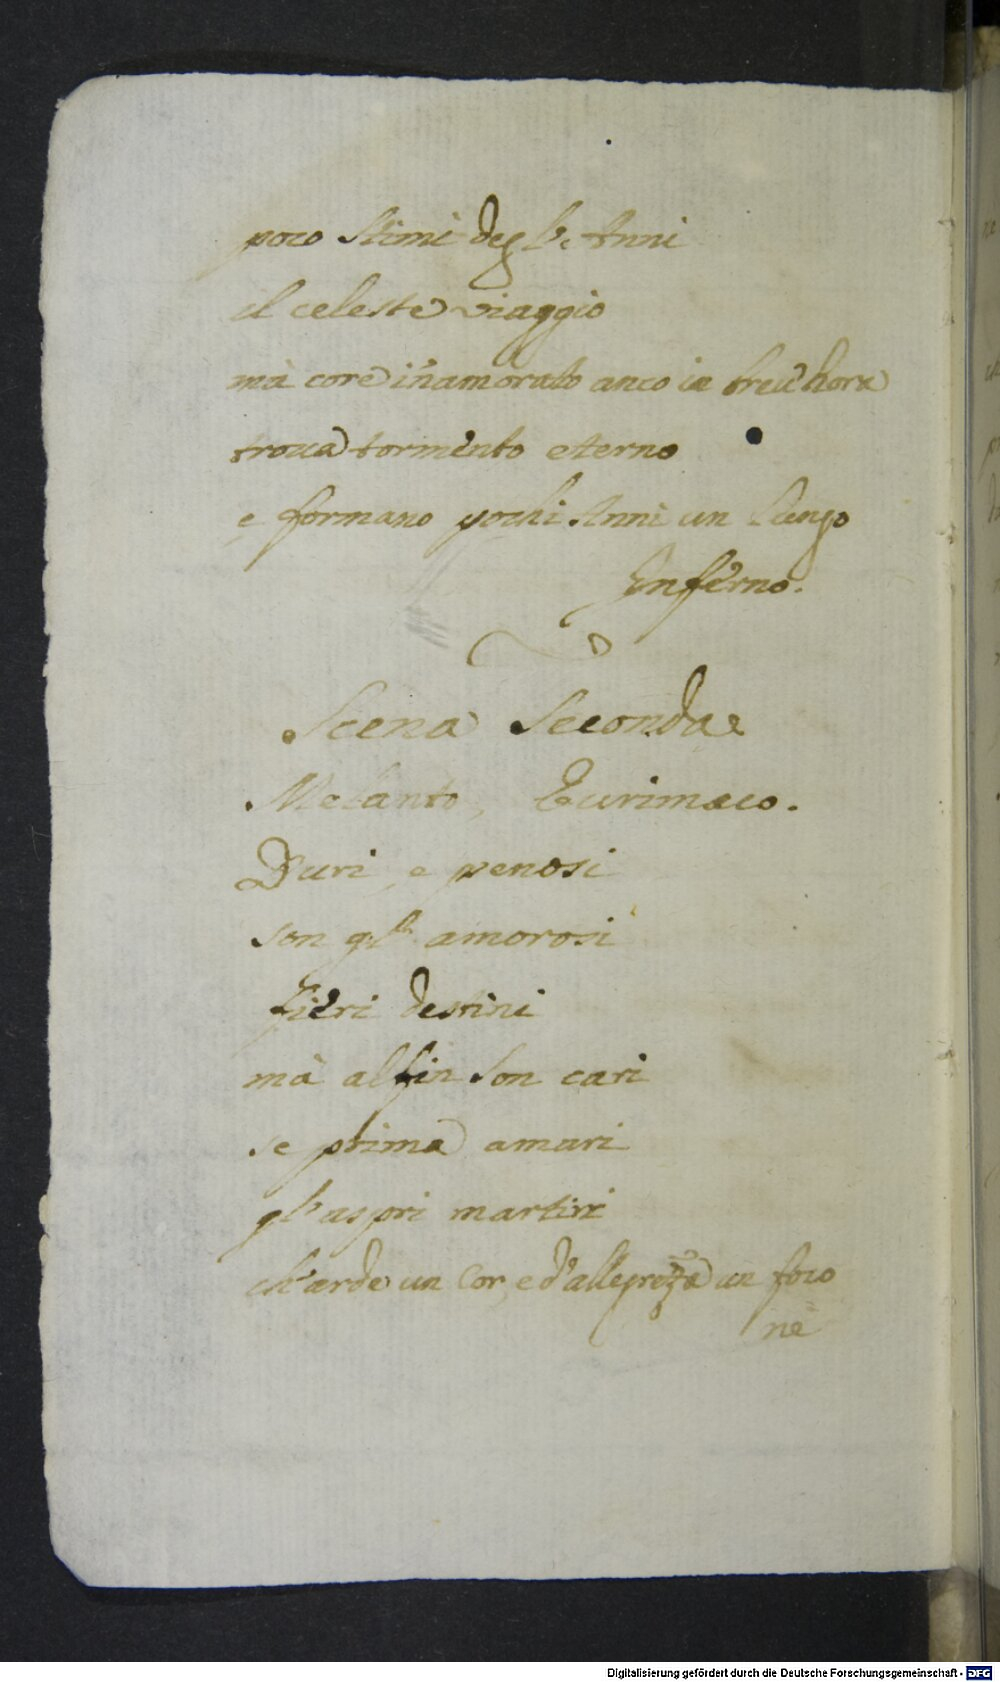 poco stimi degl'Anni
il celeste viaggio
mà core in'amorato anco in breu'hora
troua tormento eterno
e formano pochi Anni un lungo
Inferno.
Scena Seconda
Melanto, Eurimaco.
Duri, e penosi
son gl' amorosi
fieri destini
mà alfin son cari
se prima amari
gl'aspri martiri
ch'arde un Cor, e d'allegrezza un foco
nè
Digitalisierung gefördert durch die Deutsche Forschungsgemeinschaft - DFG